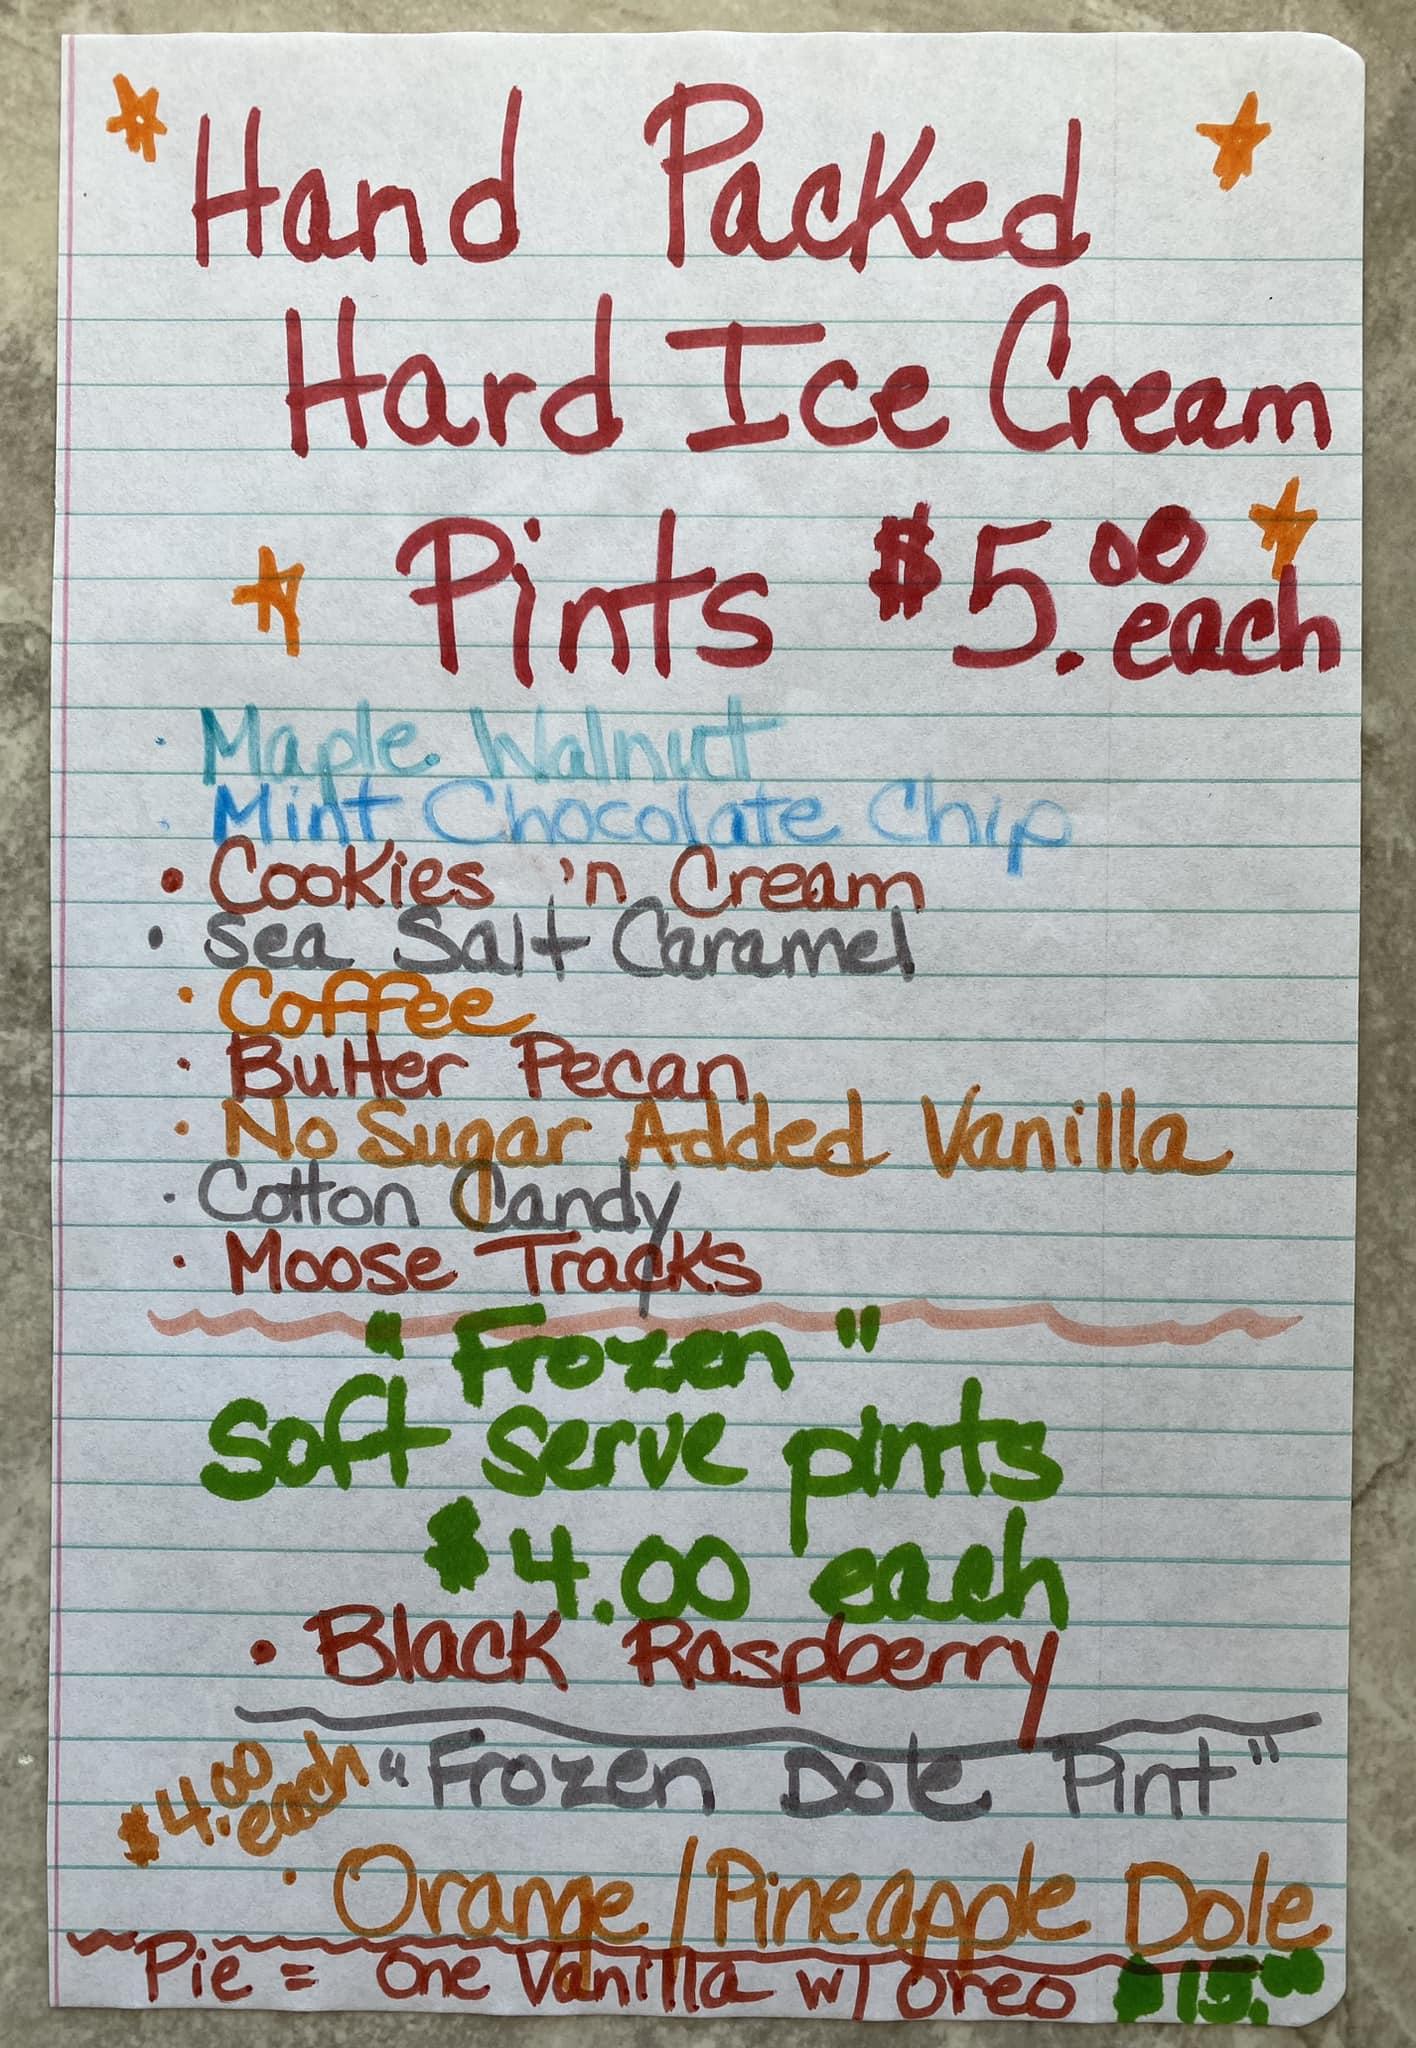 Hand Packed
Hard Ice Cream
Pints $5.00 each
· Maple Walnut
· Mint Chocolate Chip
• Cookies 'n Cream
• Sea Salt Caramel
• Coffee
• Butter Pecan
• No Sugar Added Vanilla
• Cotton Candy
• Moose Tracks
"Frozen"
Soft serve pints
$4.00 each
• Black Raspberry
$4.00 each "Frozen Dole Pint"
• Orange/Pineapple Dole
Pie = One Vanilla w/ Oreo $15.00